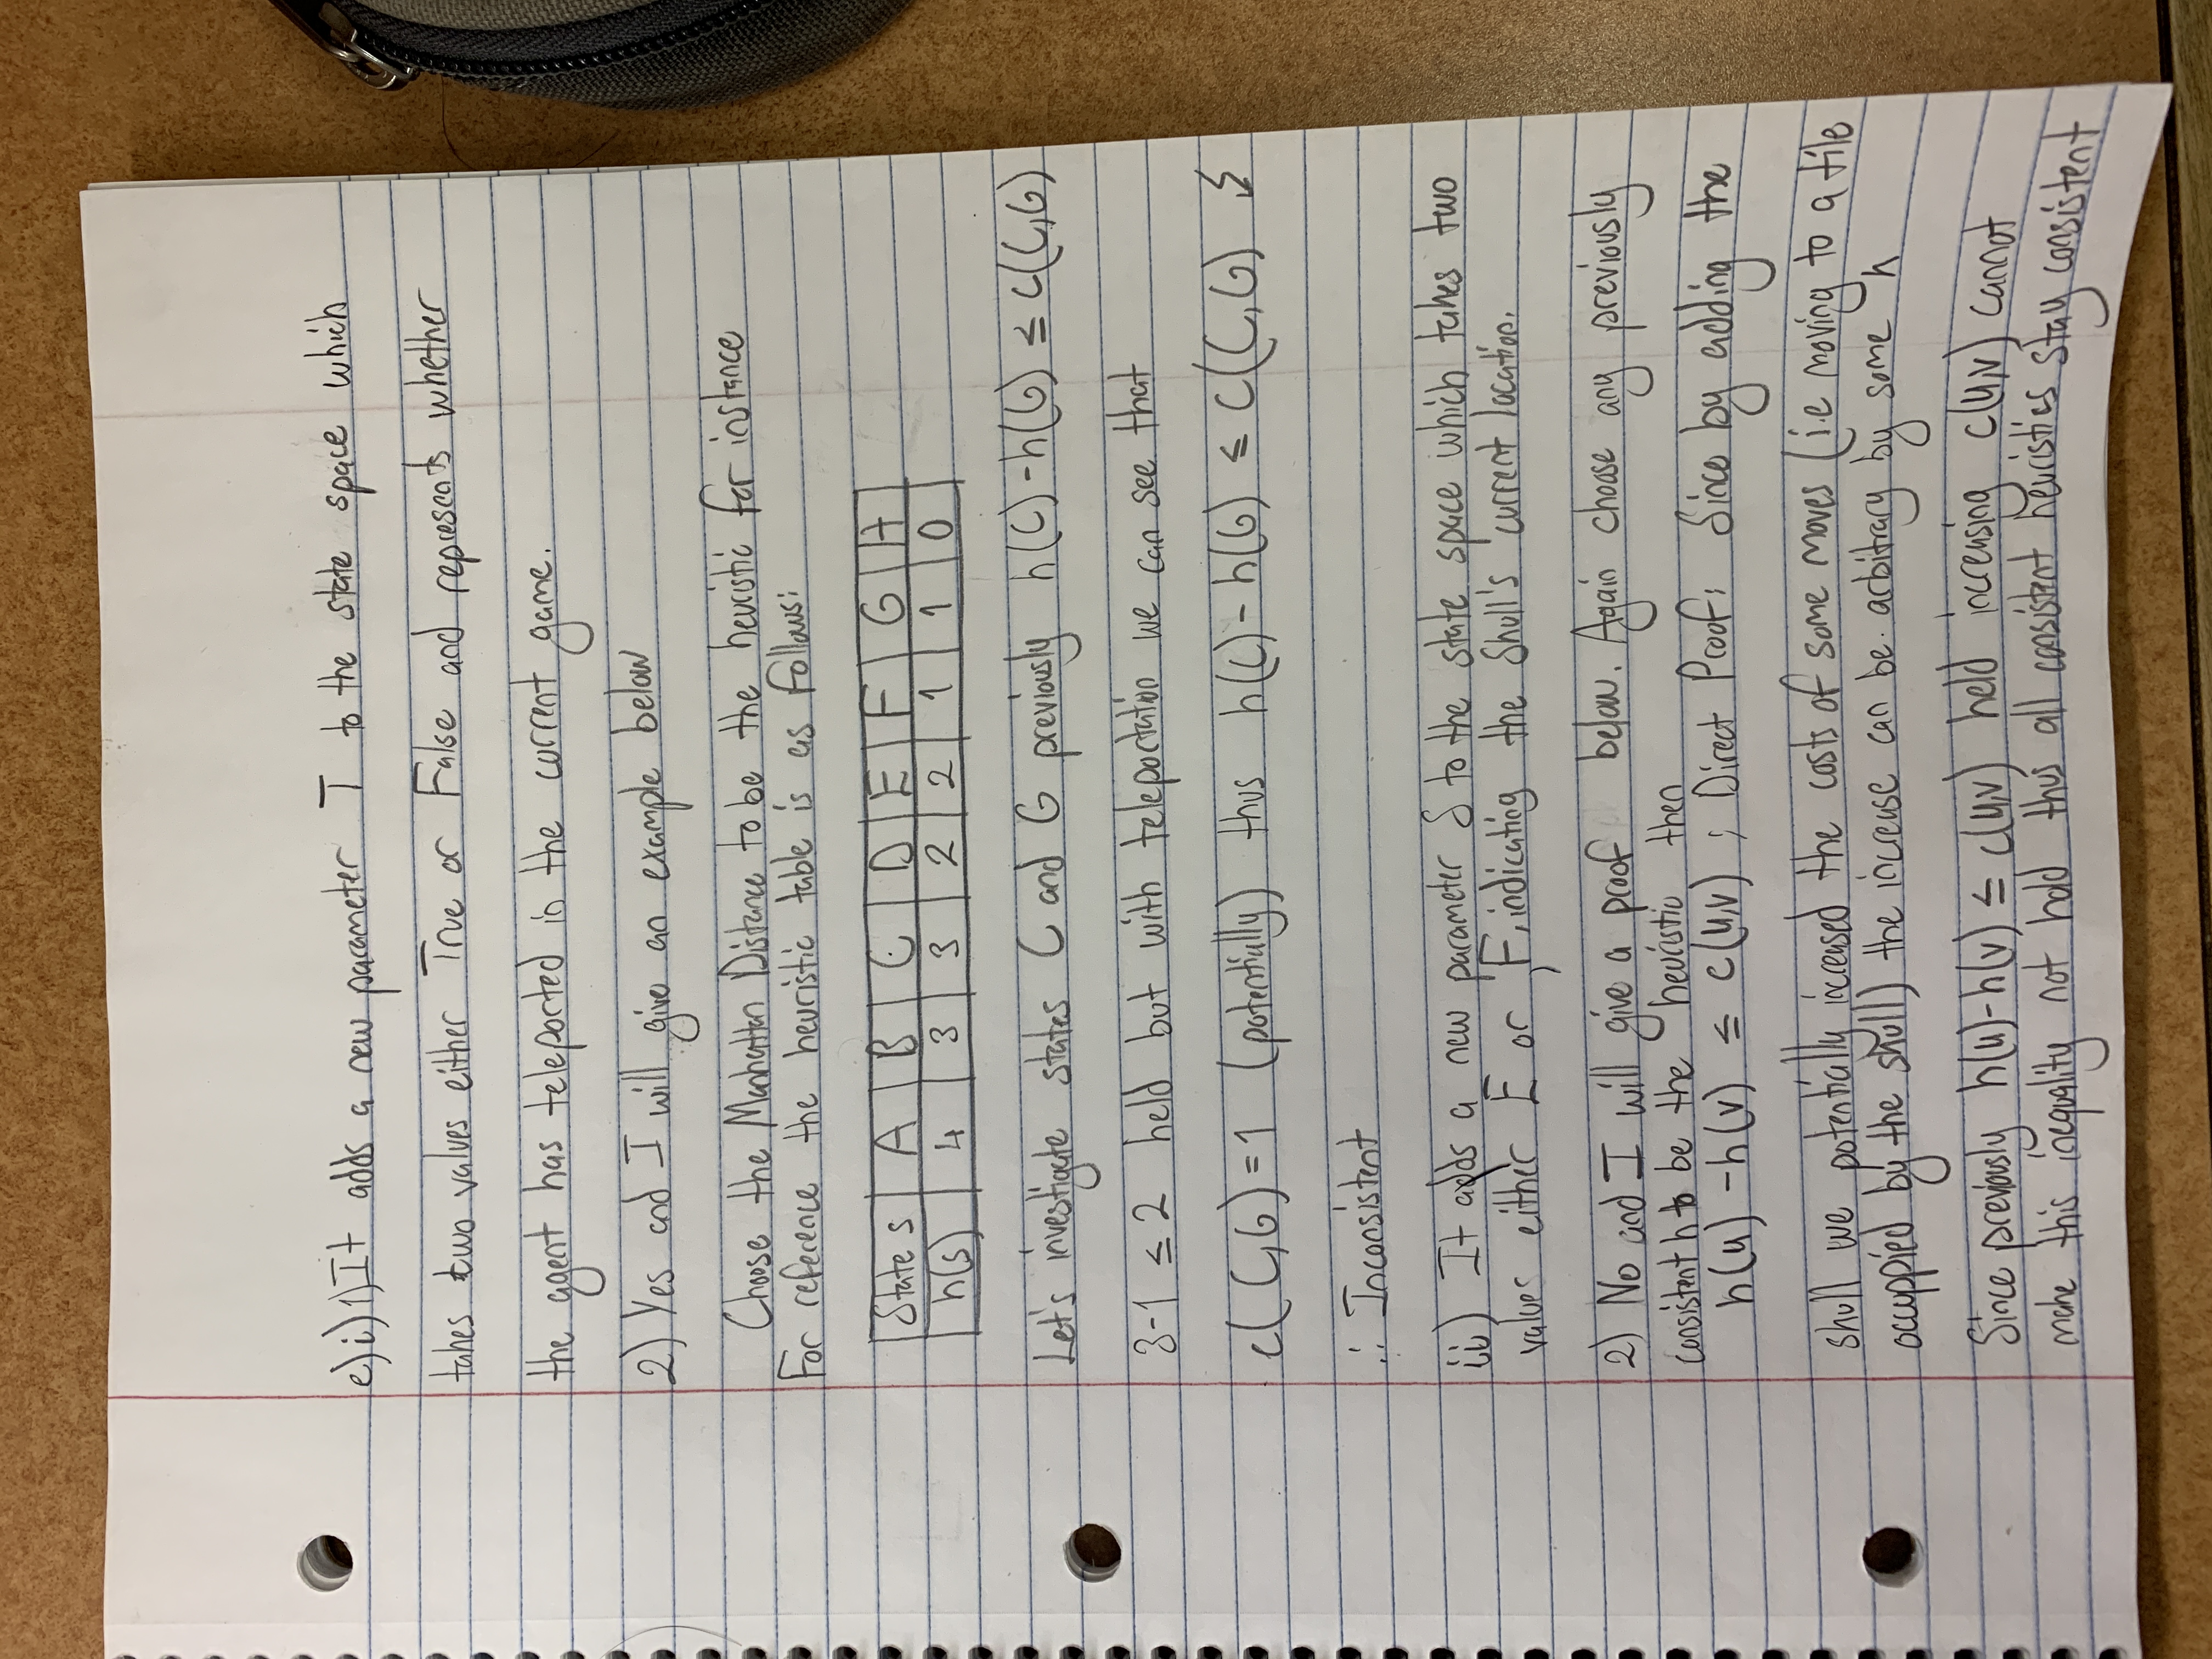 e) i) 1) It adds a new parameter T to the state space which
takes two values either True or False and represents whether
the agent has teleported in the current game.
2) Yes and I will give an example below
Choose the Manhattan Distance to be the heuristic for instance
For reference the heuristic table is as follows:
State s A B C D E F G H
h(s) 4 3 3 2 2 1 1 0
Let's investigate states C and G previously h(C)-h(G) ≤ c(C,G)
3-1 ≤ 2 held but with teleportation we can see that
c(C,G)=1 (potentially) thus h(C)-h(G) ≤ c(C,G) ↯
∴ Inconsistent
ii) It adds a new parameter S to the state space which takes two
values either E or F, indicating the Skull's current location.
2) No and I will give a proof below. Again choose any previously
consistent h to be the heuristic then
h(u) - h(v) ≤ c(u,v) ; Direct Proof: Since by adding the
skull we potentially increased the costs of some moves (i.e moving to a tile
occuppied by the skull) the increase can be arbitrary by some n
Since previously h(u)-h(v) ≤ c(u,v) held increasing c(u,v) cannot
make this inequality not hold thus all consistent heuristics stay consistent